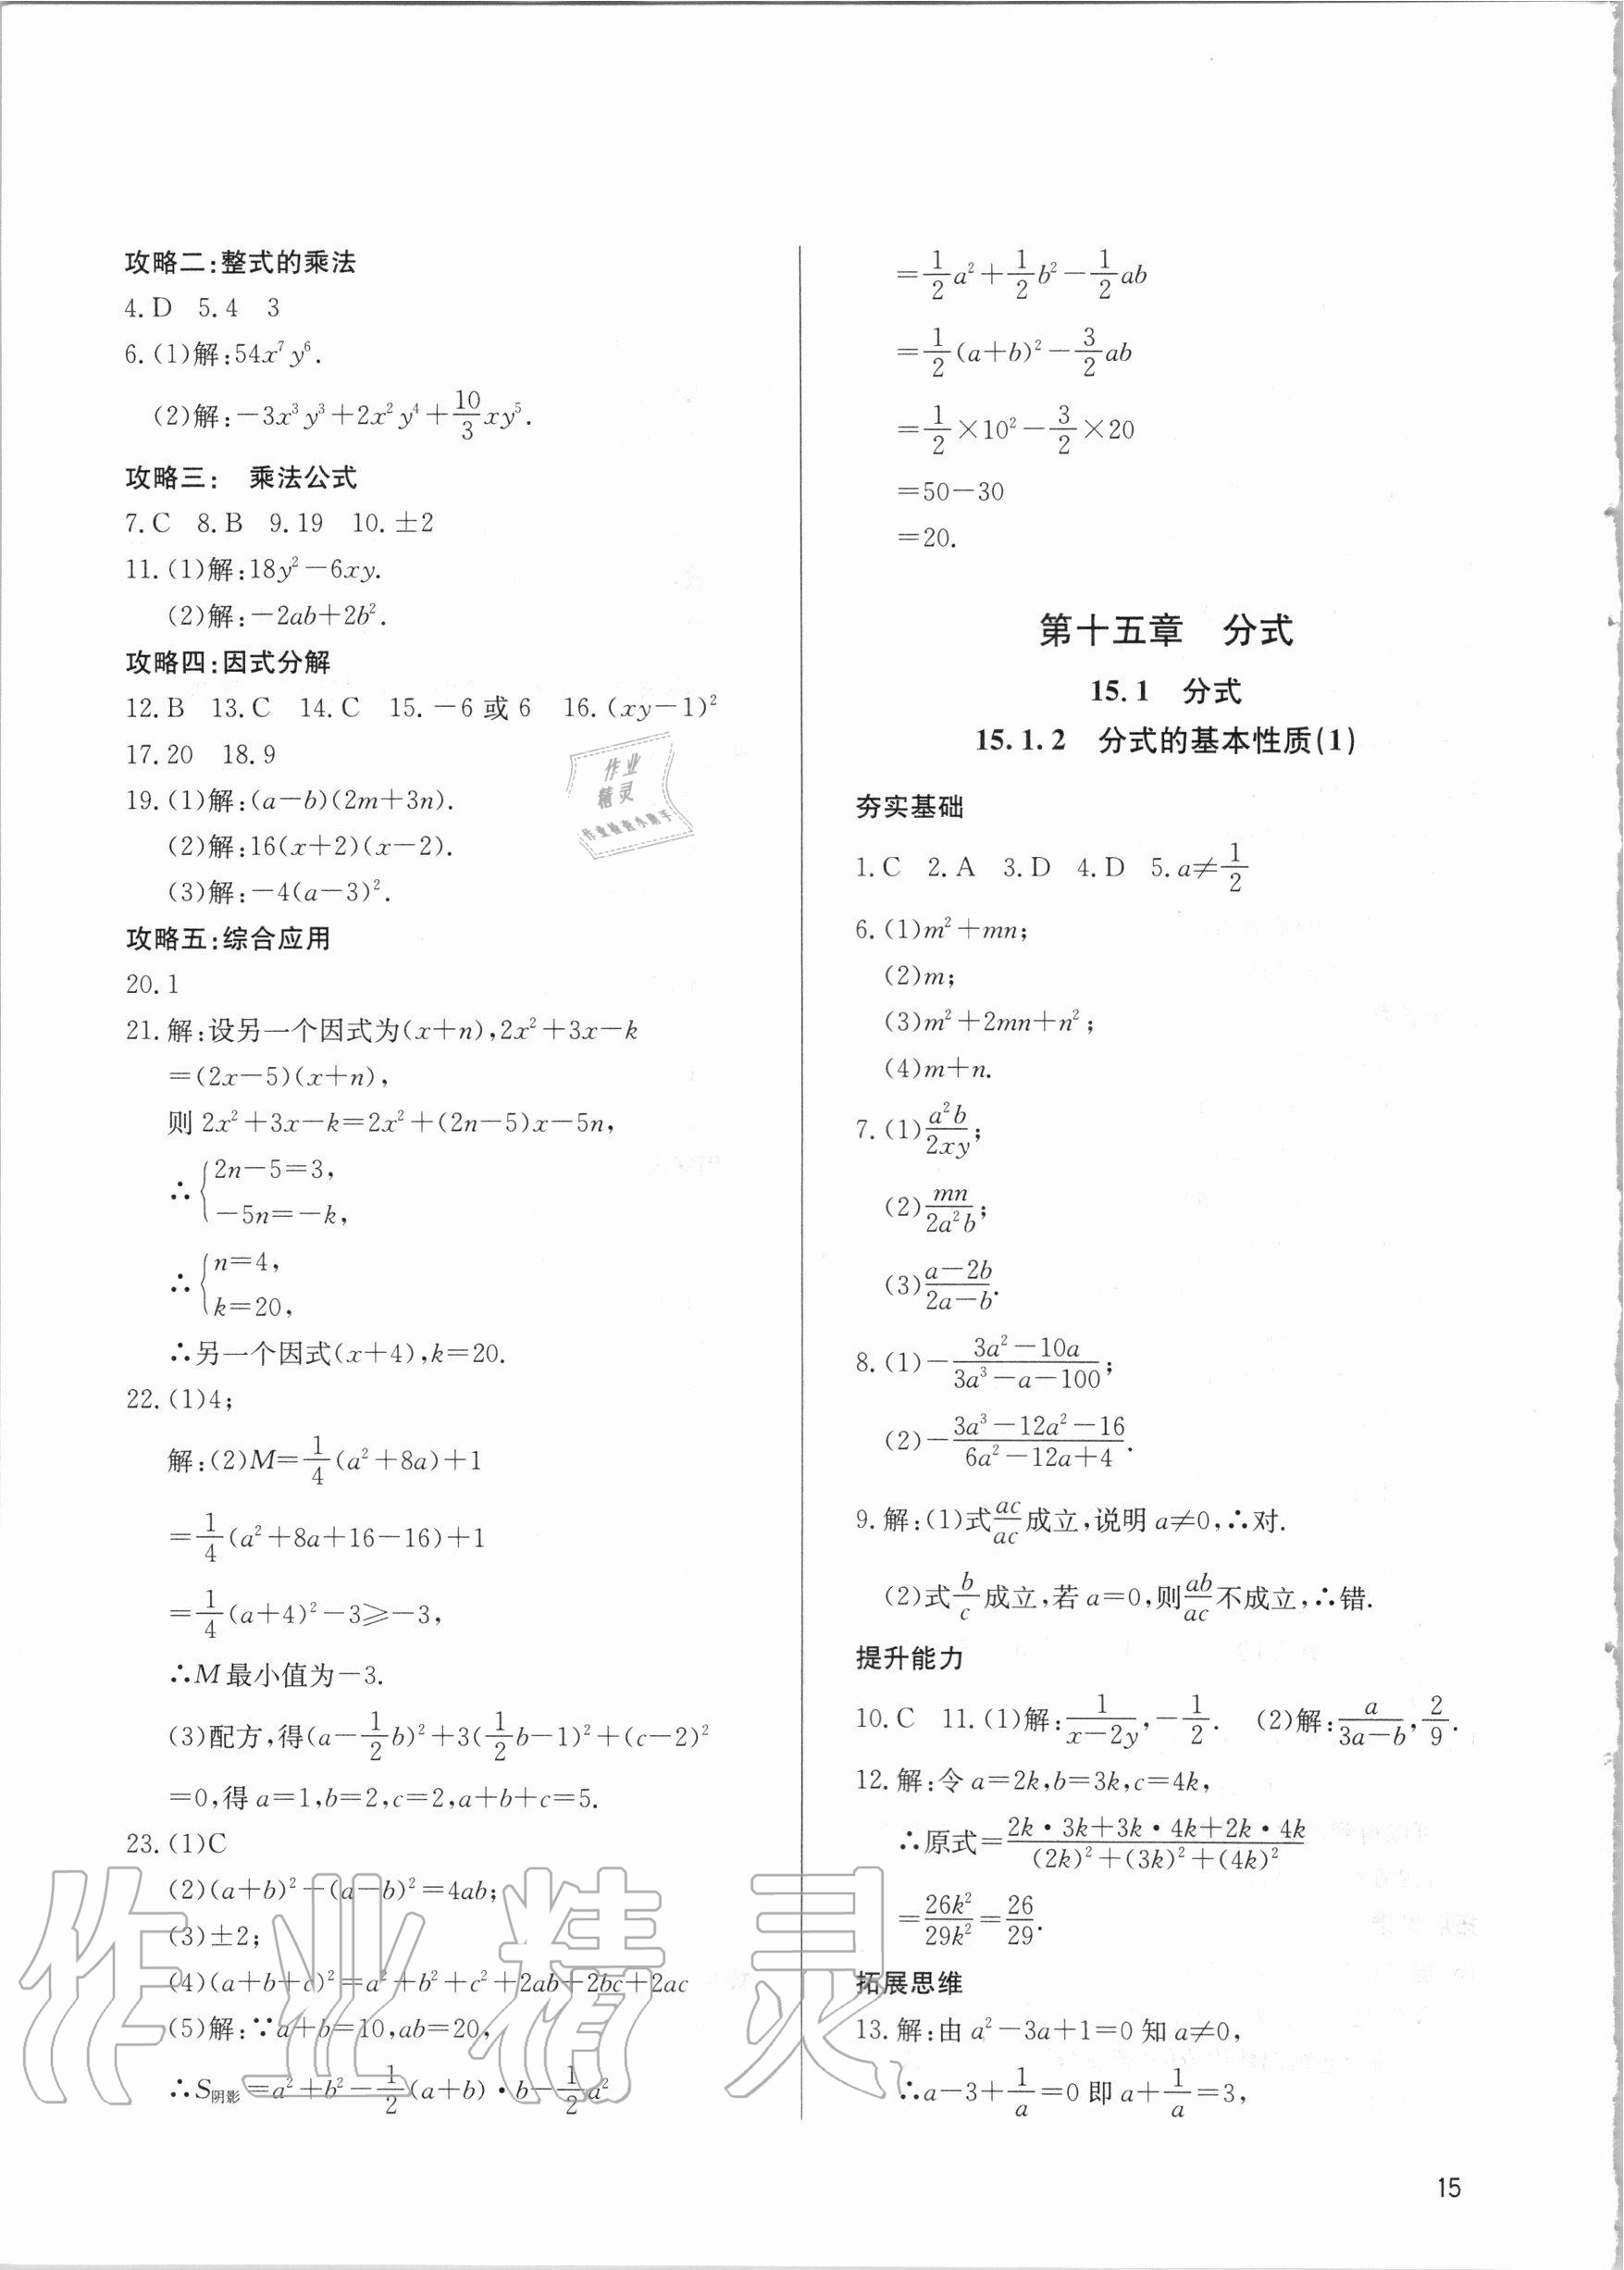 攻略二:整式的乘法
4. D 5. 4 3
6. (1)解:54x⁷y⁶.
(2)解:-3x³y³+2x²y⁴+10/3xy⁵.
攻略三: 乘法公式
7. C 8. B 9. 19 10. ±2
11. (1)解:18y²-6xy.
(2)解:-2ab+2b².
攻略四:因式分解
12. B 13. C 14. C 15. -6或6 16. (xy-1)²
17. 20 18. 9
19. (1)解:(a-b)(2m+3n).
(2)解:16(x+2)(x-2).
(3)解:-4(a-3)².
攻略五:综合应用
20. 1
21. 解:设另一个因式为(x+n),2x²+3x-k
=(2x-5)(x+n),
则2x²+3x-k=2x²+(2n-5)x-5n,
∴{2n-5=3,
-5n=-k,
∴{n=4,
k=20,
∴另一个因式(x+4),k=20.
22. (1)4;
解:(2)M=1/4(a²+8a)+1
=1/4(a²+8a+16-16)+1
=1/4(a+4)²-3≥-3,
∴M最小值为-3.
(3)配方,得(a-1/2b)²+3(1/2b-1)²+(c-2)²
=0,得a=1,b=2,c=2,a+b+c=5.
23. (1)C
(2)(a+b)²-(a-b)²=4ab;
(3)±2;
(4)(a+b+c)²=a²+b²+c²+2ab+2bc+2ac
(5)解:∵a+b=10,ab=20,
∴S阴影=a²+b²-1/2(a+b)·b-1/2a²
=1/2a²+1/2b²-1/2ab
=1/2(a+b)²-3/2ab
=1/2×10²-3/2×20
=50-30
=20.
第十五章 分式
15.1 分式
15.1.2 分式的基本性质(1)
夯实基础
1. C 2. A 3. D 4. D 5. a≠1/2
6. (1)m²+mn;
(2)m;
(3)m²+2mn+n²;
(4)m+n.
7. (1)a²b/2xy;
(2)mn/2a²b;
(3)(a-2b)/(2a-b).
8. (1)-(3a²-10a)/(3a³-a-100);
(2)-(3a³-12a²-16)/(6a²-12a+4).
9. 解:(1)式ac/ac成立,说明a≠0,∴对.
(2)式b/c成立,若a=0,则ab/ac不成立,∴错.
提升能力
10. C 11. (1)解:1/(x-2y),-1/2. (2)解:a/(3a-b),2/9.
12. 解:令a=2k,b=3k,c=4k,
∴原式=(2k·3k+3k·4k+2k·4k)/((2k)²+(3k)²+(4k)²)
=26k²/29k²=26/29.
拓展思维
13. 解:由a²-3a+1=0知a≠0,
∴a-3+1/a=0即a+1/a=3,
15
作业
精灵
作业检查小助手
作业精灵